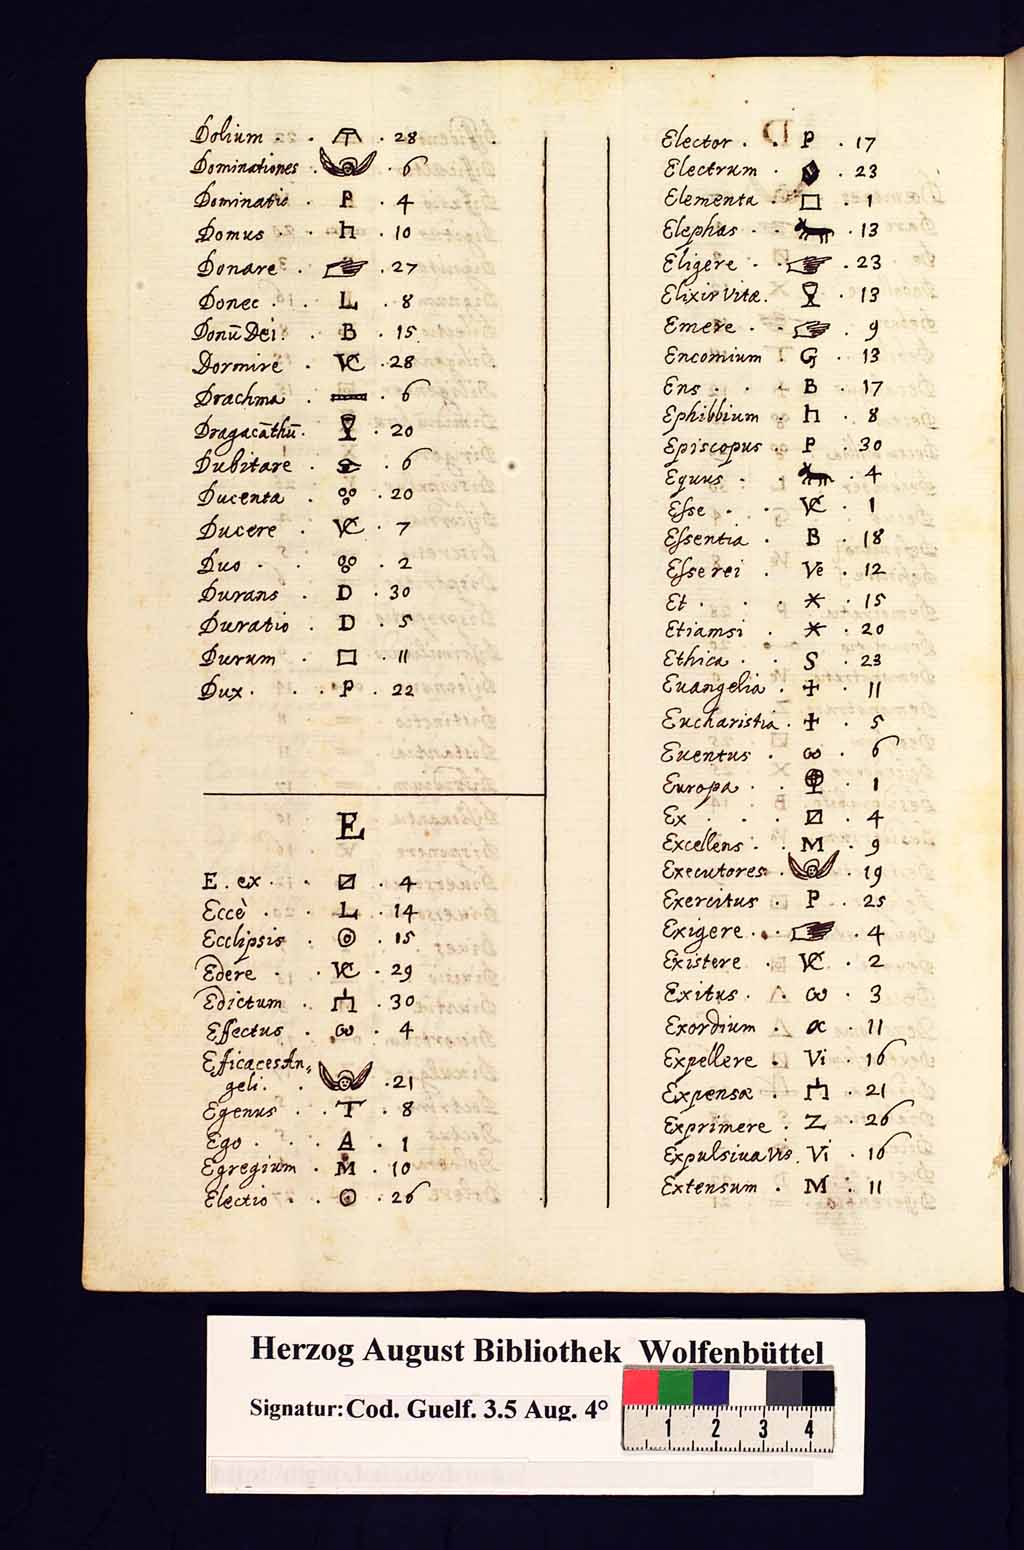 Dolium . . 28
Dominationes . . 6
Dominatio . P . 4
Domus . h . 10
Donare . . 27
Donec . . L . 8
Donū Dei . B . 15
Dormire . VC . 28
Drachma . . 6
Dragacāthū . . 20
Dubitare . . 6
Ducenta . . 20
Ducere . VC . 7
Duo . . . 2
Durans . D . 30
Duratio . D . 5
Durum . □ . 11
Dux . . . P . 22
E
E . ex . . . 4
Eccè . . L . 14
Ecclipsis . ⊙ . 15
Edere . . VC . 29
Edictum . . 30
Effectus . ω . 4
Efficaces An,
geli . . . 21
Egenus . . T . 8
Ego . . . A . 1
Egregium . M . 10
Electio . . ⊙ . 26
D
Elector . . P . 17
Electrum . . 23
Elementa . □ . 1
Elephas . . . 13
Eligere . . . 23
Elixir Vitæ . . 13
Emere . . . 9
Encomium . G . 13
Ens . . . B . 17
Ephibbium . h . 8
Episcopus . P . 30
Equus . . . 4
Eſse . . VC . 1
Eſsentia . B . 18
Eſse rei . Ve . 12
Et . . . * . 15
Etiamsi . * . 20
Ethica . . S . 23
Euangelia . + . 11
Eucharistia . + . 5
Euentus . ω . 6
Europa . . . 1
Ex . . . . 4
Excellens . . M . 9
Executores . . 19
Exercitus . P . 25
Exigere . . . 4
Existere . VC . 2
Exitus . . ω . 3
Exordium . α . 11
Expellere . Vi . 16
Expensæ . . 21
Exprimere . Z . 26
Expulsiua Vis . Vi . 16
Extensum . M . 11
Herzog August Bibliothek Wolfenbüttel
Signatur: Cod. Guelf. 3.5 Aug. 4°
1 2 3 4